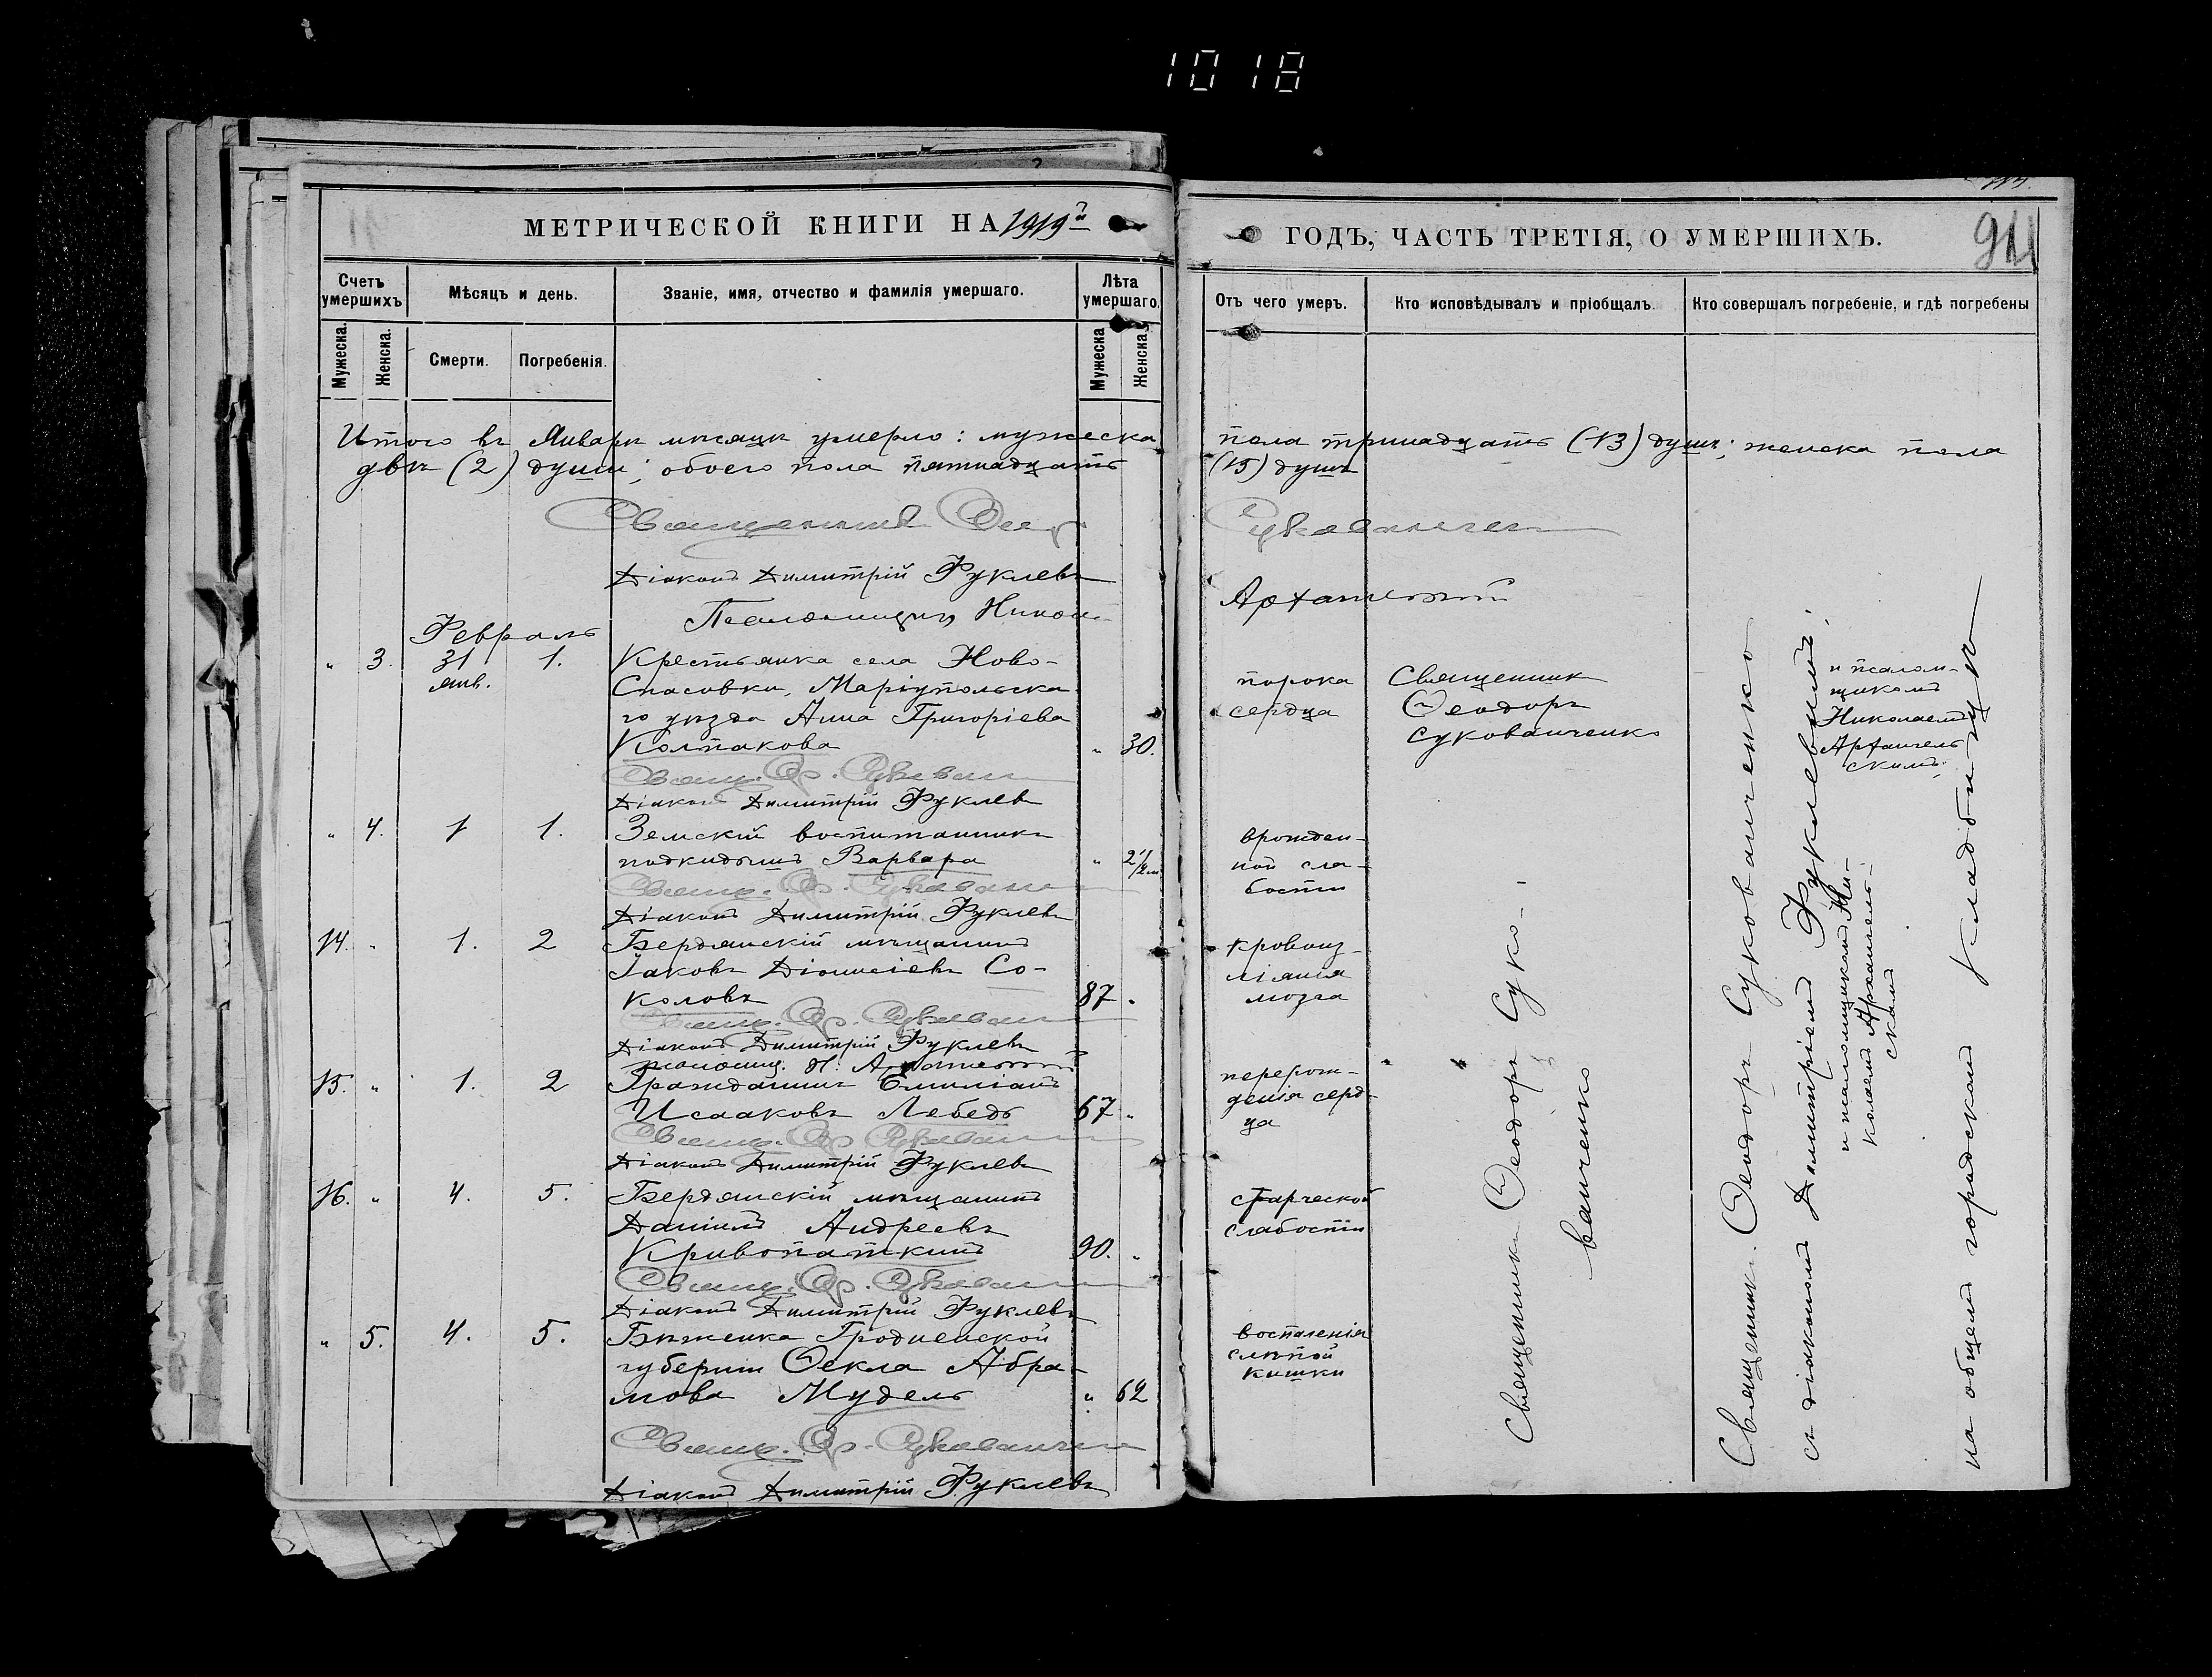 1018
МЕТРИЧЕСКОЙ КНИГИ НА 1919 г
Счетъ умершихъ
Мѣсяцъ и день.
Званіе, имя, отчество и фамилія умершаго.
Лѣта умершаго.
Мужеска.
Женска.
Смерти.
Погребенія.
Мужеска
Женска.
Итого въ Январѣ мѣсяцѣ умерло: мужеска
двѣ (2) души; обоего пола пятнадцать
Священникъ
Діаконъ Димитрій Фуклевъ
Псаломщикъ
Февраль
" 3. 31 янв. 1. Крестьянка села Ново-
Спасовки, Маріупольска-
го уѣзда Анна Григоріева
Колпакова " 30.
Свящ. Ѳ. Сукован
Діаконъ Димитрій Фуклевъ
" 4. 1 1. Земскій воспитанникъ
подкидышъ Варвара " 2 1/2 м
Свящ. Ѳ. Сукован
Діаконъ Димитрій Фуклевъ
14. " 1. 2 Бердянскій мѣщанинъ
Іаковъ Діонисіевъ Со-
коловъ 87 "
Свящ. Ѳ. Сукован
Діаконъ Димитрій Фуклевъ
псаломщ. Н. Архангельскій
15. " 1. 2 Гражданинъ Емиліанъ
Исааковъ Лебедь 67 "
Свящ. Ѳ. Сукован
Діаконъ Димитрій Фуклевъ
16. " 4. 5. Бердянскій мѣщанинъ
Даніилъ Андреевъ
90. "
Свящ. Ѳ. Сукован
Діаконъ Димитрій Фуклевъ
" 5. 4. 5. Бѣженка Гродненской
губерніи Ѳекла Абра-
мова Мудель " 62
Свящ. Ѳ. Суковanчен
Діаконъ Димитрій Фуклевъ
ГОДЪ, ЧАСТЬ ТРЕТІЯ, О УМЕРШИХЪ.
Отъ чего умеръ.
Кто исповѣдывалъ и пріобщалъ.
Кто совершалъ погребеніе, и гдѣ погребены
пола тринадцать (13) душъ; женска пола
(15) душъ
Суковanченко
Архангельскій
порока
сердца
Священникъ
Ѳеодоръ
Суковanченко
врожден-
ной сла-
бости
кровоиз-
ліянія
мозга
перерож-
денія серд-
ца
старческой
слабости
воспаленія
слѣпой
кишки
Священникъ Ѳеодоръ Суко-
ванченко
Священникъ Ѳеодоръ Суковanченко
съ діакономъ Димитріемъ Фуклевымъ
и псалом-
щикомъ
Николаемъ
Архангель-
скимъ
и псаломщикомъ Ни-
колаемъ Архангель-
скимъ
на общемъ городскомъ кладбищѣ